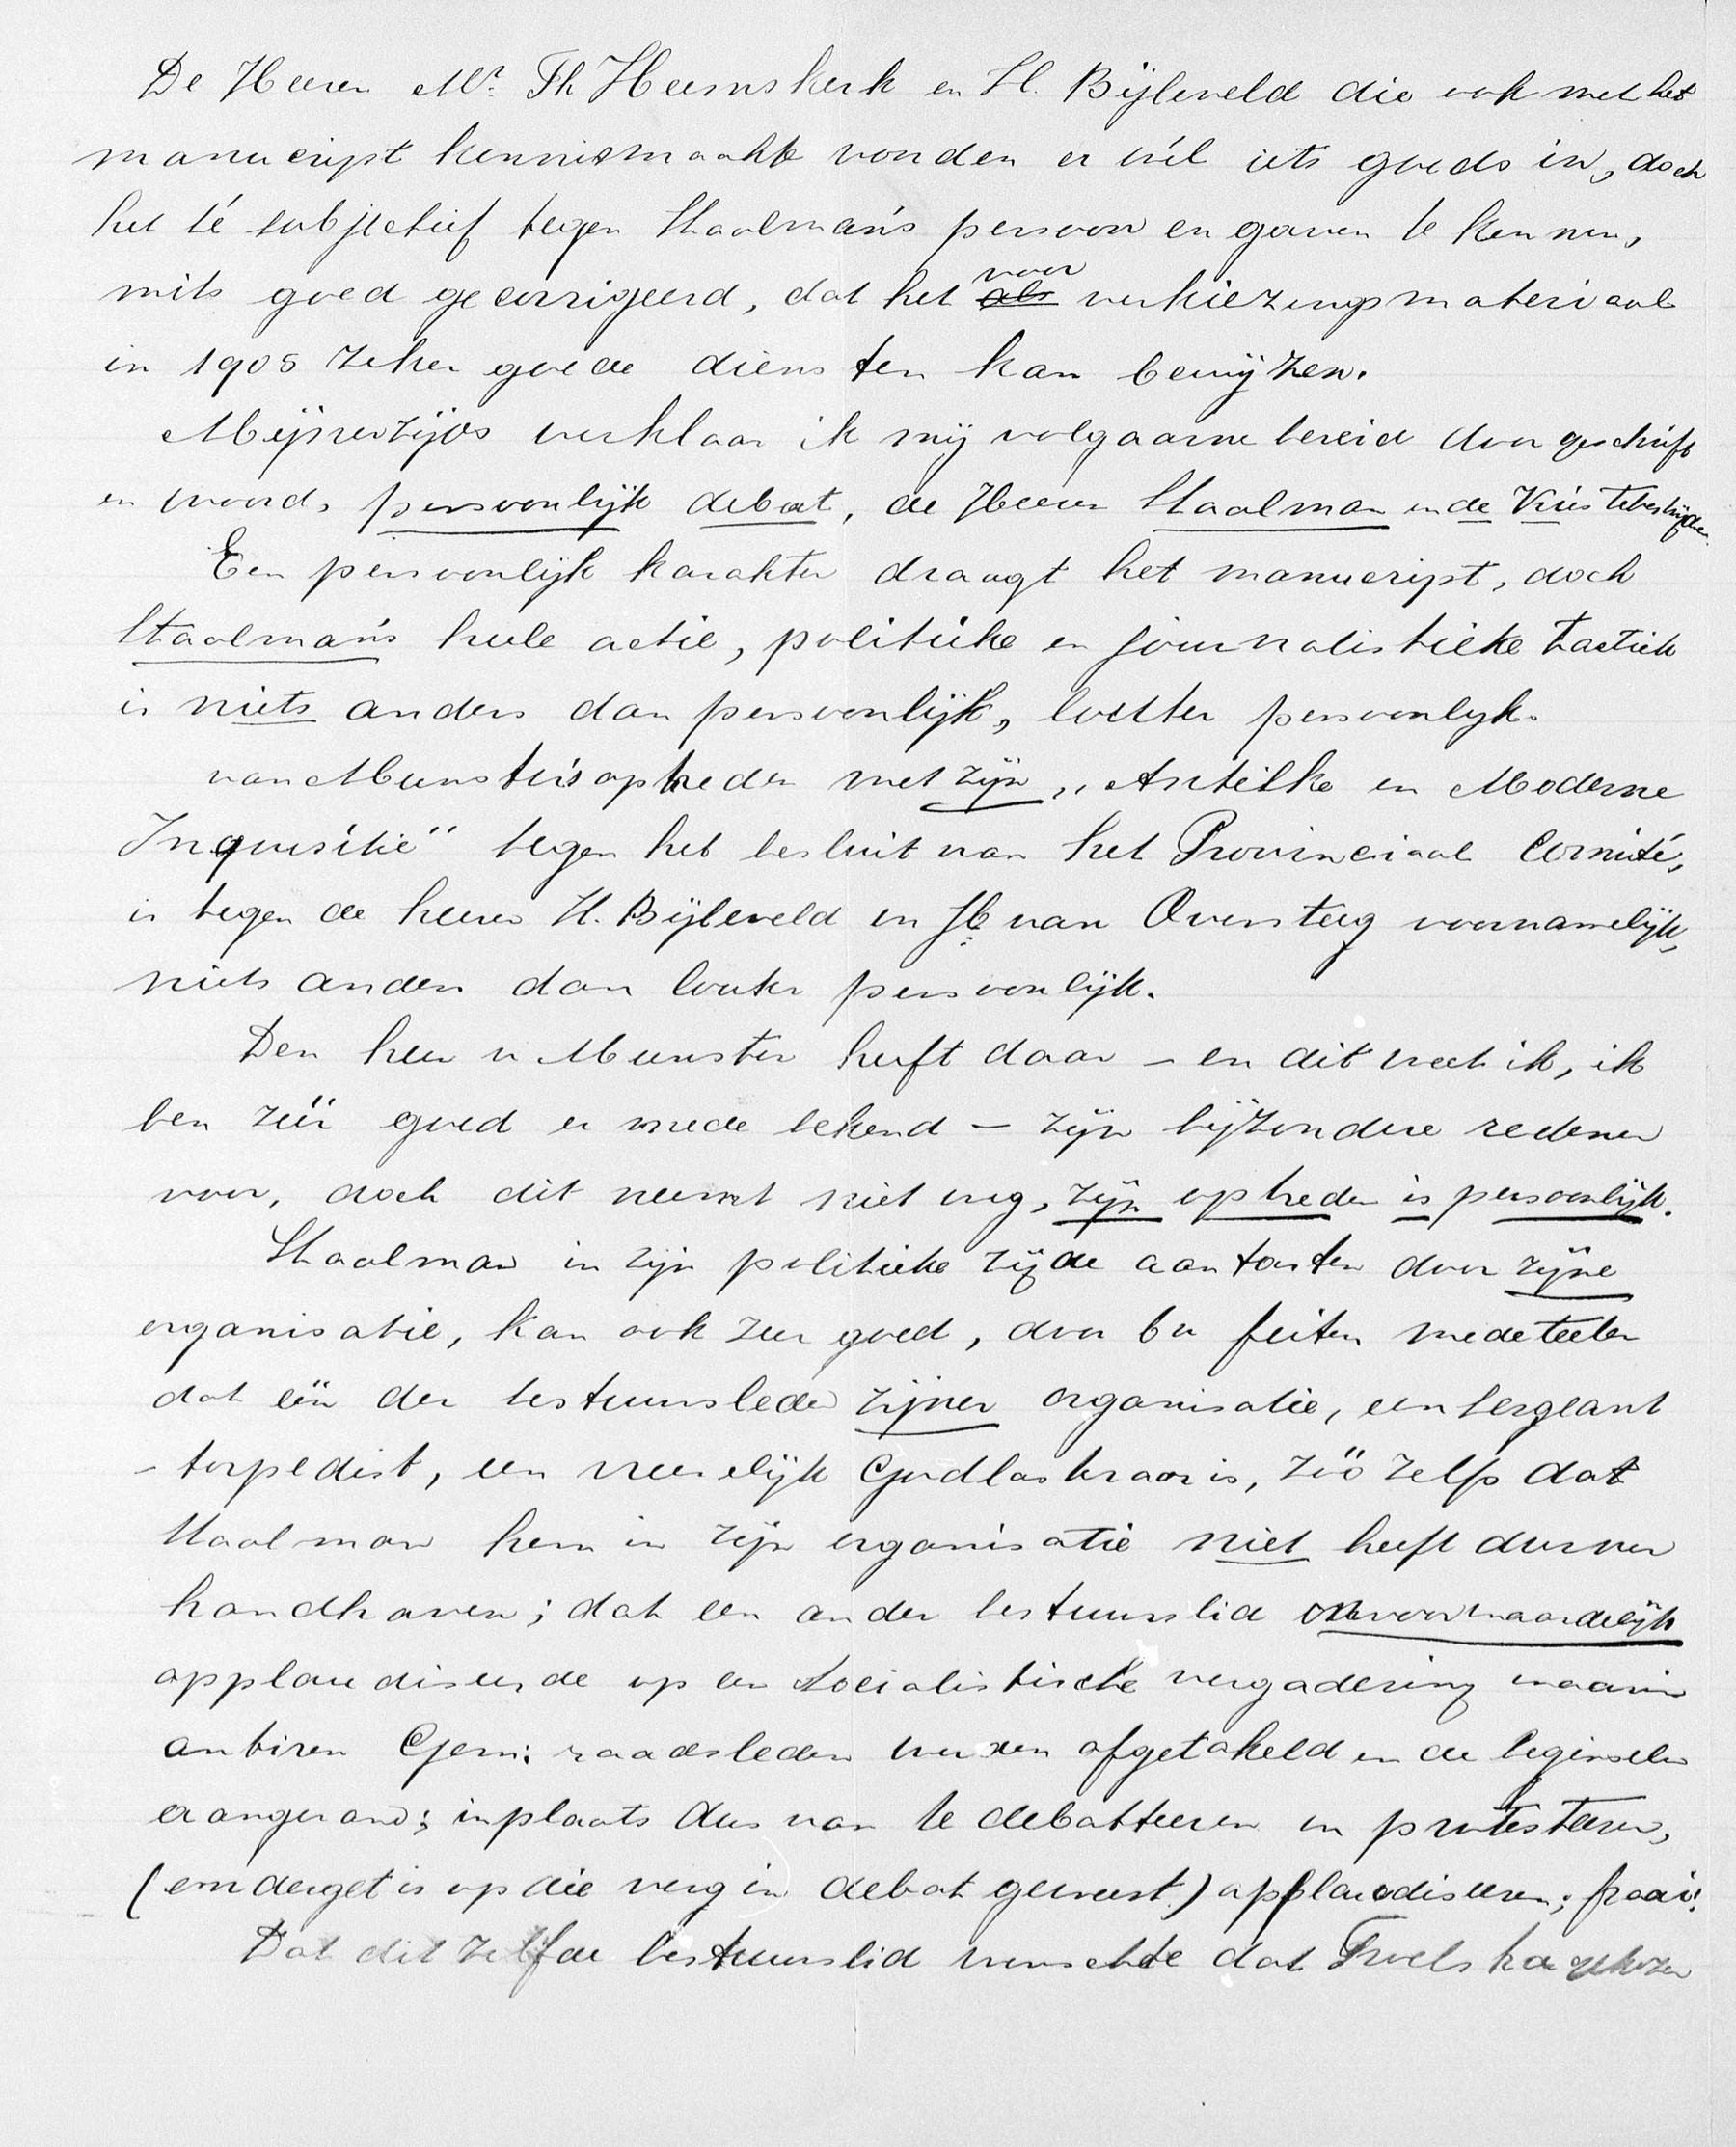 De Heeren Mr. Th Heemskerk en H. Bijleveld die ook met het
manucript kennismaakte vonden er wél iets goeds in, doch
het té subjectief tegen Staalman's persoon en gaven te kennen,
mits goed gecorrigeerd, dat het voor verkiezingsmateriaal
in 1905 zeker goede diensten kan bewijzen.
Mijnerzijds verklaar ik mij volgaarne bereid door geschrift
en woord, persoonlijk debat, de Heeren Staalman en de Vries te bestrijden.
Een persoonlijk karakter draagt het manucript, doch
Staalman's heele actie, politieke en journalistieke tactiek
is niets anders dan persoonlijk, louter persoonlijk.
van Munster's optreden met zijn „Antieke en Moderne
Inquisitie" tegen het besluit van het Provinciaal Comité,
is tegen de heeren H. Bijleveld en Jb. van Oversteeg voornamelijk,
niets anders dan louter persoonlijk.
Den heer v Munster heeft daar – en dit weet ik, ik
ben zéér goed er mede bekend – zijn bijzondere redenen
voor, doch dit neemt niet weg, zijn optreden is persoonlijk.
Staalman in zijn politieke zijde aantasten door zijne
organisatie, kan ook zeer goed, door bv feiten mede te deelen
dat één der bestuursleden zijner organisatie, een sergeant
- torpedist, een vreeselijk Godlasteraar is, zóó zelfs dat
Staalman hem in zijn organisatie niet heeft durven
handhaven; dat een ander bestuurslid onvoorwaardelijk
applaudiseerde op een Socialistische vergadering waarin
antiren Gem: raadsleden werden afgetakeld en de beginselen
aangerand; inplaats dus van te debatteeren en protesteeren,
(ondergetis op die verg in debat geweest) applaudiseeren; fraai!
Dat dit zelfde bestuurslid wenschte dat Troelstra gekozen